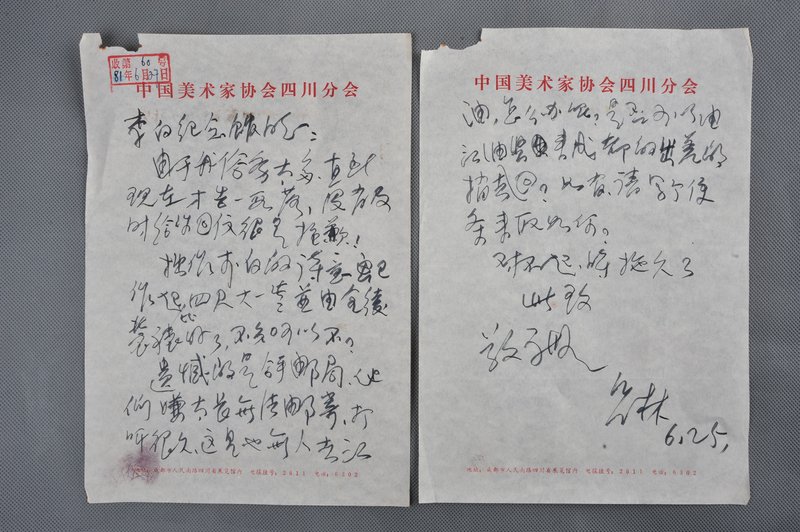 收韶60号
81年6月29日
中国美术家协会四川分会
李白纪念馆的
由于丹 务太多，直到
现在才告一段落，没有及
时给你回信很是抱歉！
拙作 李白的诗意画已
作 四尺大一 并由全绫
装裱好了，不知可以不？
遗憾的是 邮局，他
们嫌太长无法邮寄，打
听很久，这里也无人去江
地址：成都市人民南路四川省展览馆内 电报挂号：2611 电话：6302
中国美术家协会四川分会
油，怎么办呢？是否可以由
江油 来成都的出差的
捎去回？如有，请写个便
条来取如何？
对不起，时拖久了
此致
敬礼
林
6.25，
地址：成都市人民南路四川省展览馆内 电报挂号：2611 电话：6302